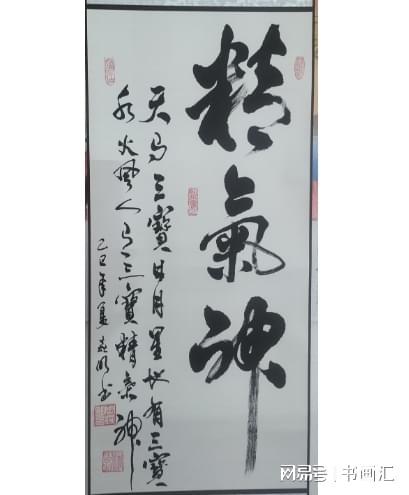 精氣神
天有三寶日月星地有三寶
水火風人有三寶精氣神
乙巳年夏
网易号 | 书画汇